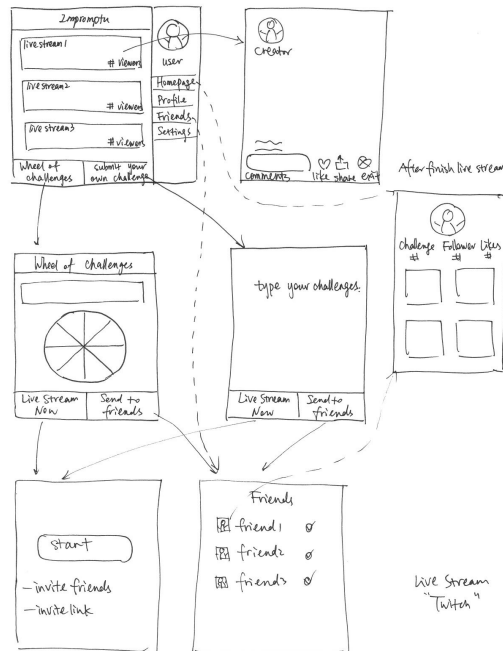 Impromptu
livestream1
# viewers
livestream2
# viewers
livestream3
# viewers
Wheel of challenges
submit your own challenge
user
Homepage
Profile
Friends
Settings
Creator
comments
like
share
exit
After finish live stream
Challenge
#
Follower
#
Likes
#
Wheel of Challenges
Live Stream Now
Send to friends
type your challenges.
Live Stream Now
Send to friends
start
-invite friends
-invite link
Friends
friend1
friend2
friend3
Live Stream
"Twitch"